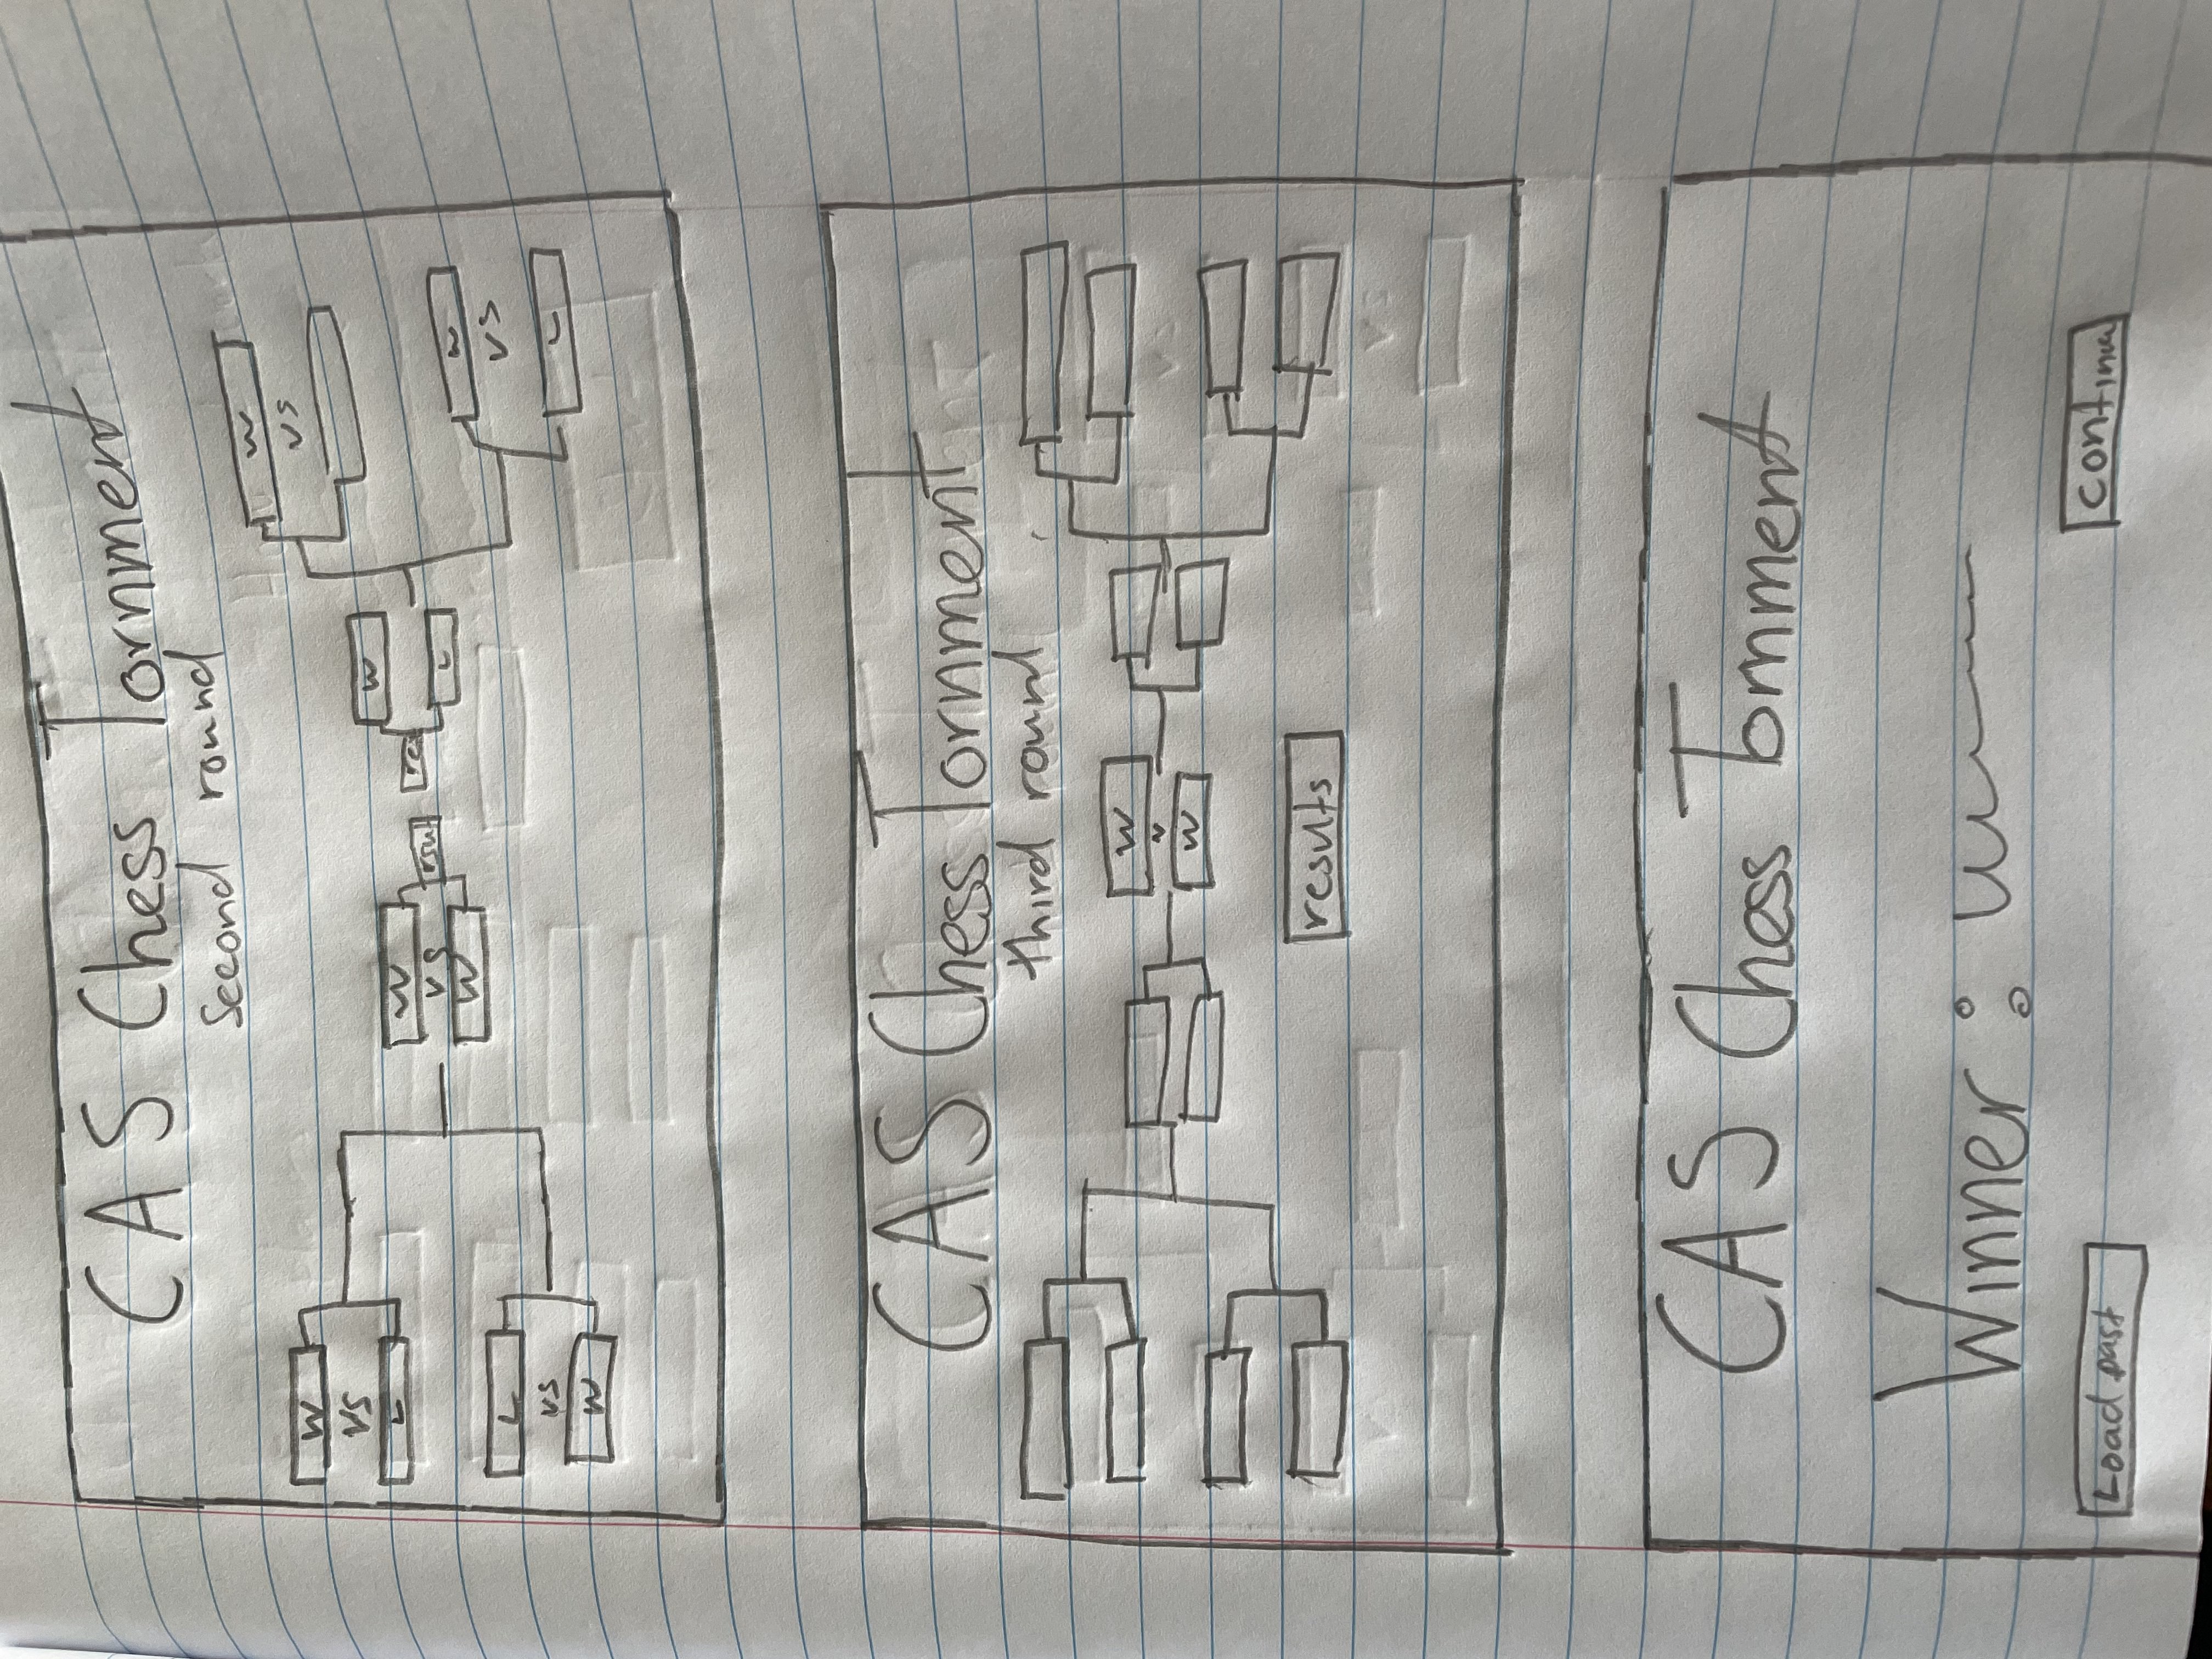 CAS Chess Tornment
Second round
W
vs
L
L
vs
W
W
vs
W
rsut
re
W
L
W
vs
W
vs
L
CAS Chess Tornment
third round
W
v
W
results
CAS Chess Tornment
Winner :
Load past
continue